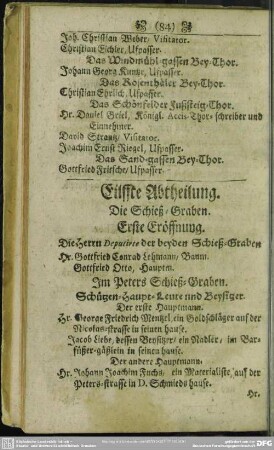 (84)
Joh. Christian Weber, Visitator.
Christian Eichler, Ufpasser.
Das Windmühl-gassen Bey-Thor.
Johann Georg Kuntze, Ufpasser.
Das Rosenthäler Bey-Thor.
Christian Ehrlich, Ufpasser.
Das Schönfelder Fussteig-Thor.
Hr. Daniel Griel, Königl. Accis-Thor-schreiber und
Einnehmer.
David Strantz, Visitator.
Joachim Ernst Riegel, Ufpasser.
Das Sand-gassen Bey-Thor.
Gottfried Fritsche, Ufpasser.
Eilffte Abtheilung.
Die Schieß-Graben.
Erste Eröffnung.
Die Herrn Deputirte der beyden Schieß-Graben
Hr. Gottfried Conrad Lehmann, Baum.
Gottfried Otto, Hauptm.
Im Peters Schieß-Graben.
Schützen-Haupt-Leute und Beysitzer.
Der erste Hauptmann.
Hr. George Friedrich Mentzel, ein Goldschläger auf der
Nicolas-strasse in seinen hause.
Jacob Liebe, dessen Beysitzer, ein Nadler, im Bar-
füßer-gäßlein in seinen hause.
Der andere Hauptmann.
Hr. Johann Joachim Fuchs, ein Materialiste, auf der
Peters-strasse in D. Schmieds hause.
Hr.
DFG